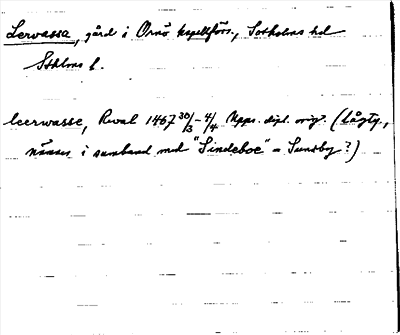 Lervassa, gård i Ornö kapellförs., Sotholms hd
Sthlms l.
leerwasse, Reval 1467 30/3-4/4 Upps. dipl. orig. (Lågty.,
nämnes i samband med "Sindeboe" = Sundby?)